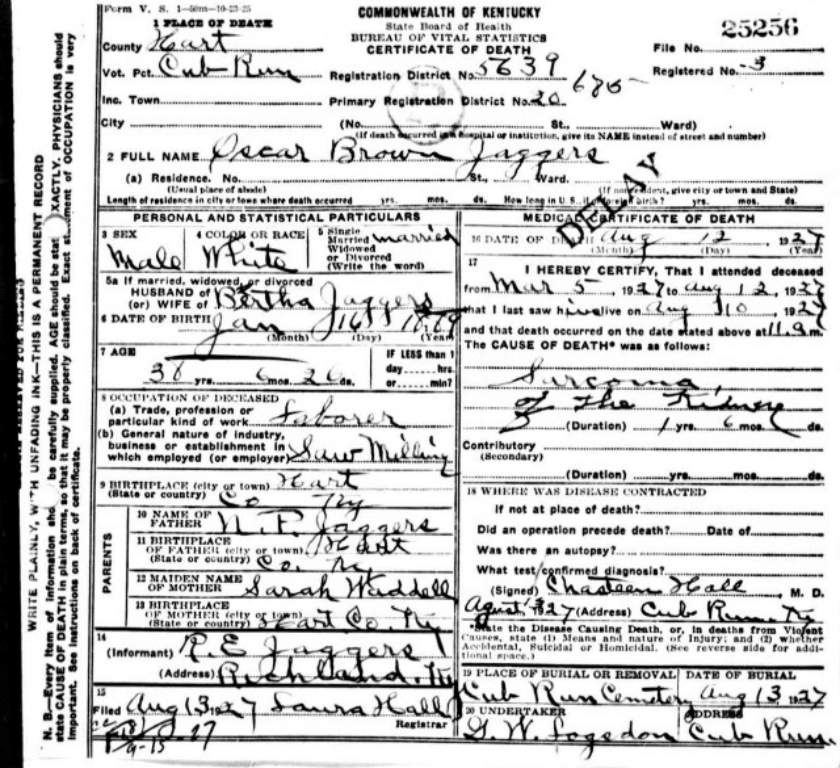 Form V. S. 1-50m-10-23-25
COMMONWEALTH OF KENTUCKY
State Board of Health
BUREAU OF VITAL STATISTICS
CERTIFICATE OF DEATH
25256
1 PLACE OF DEATH
County Hart
File No.
Vot. Pct. Cub Run
Registration District No. 5639
Registered No. 3
685
Inc. Town
Primary Registration District No. 20
City
(No. St., Ward)
(If death occurred in a hospital or institution, give its NAME instead of street and number)
2 FULL NAME Oscar Brown Jaggers
(a) Residence. No. St., Ward.
(Usual place of abode)
(If nonresident, give city or town and State)
Length of residence in city or town where death occurred yrs. mos. ds. How long in U. S., if of foreign birth? yrs. mos. ds.
DELAY
PERSONAL AND STATISTICAL PARTICULARS
3 SEX
Male
4 COLOR OR RACE
White
5 Single
Married
Widowed
or Divorced
(Write the word)
married
5a If married, widowed, or divorced
HUSBAND of
(or) WIFE of
Bertha Jaggers
6 DATE OF BIRTH Jan 16
(Month) (Day) (Year)
7 AGE
38 yrs. 6 mos. 26 ds.
IF LESS than 1
day hrs.
or min?
8 OCCUPATION OF DECEASED
(a) Trade, profession or
particular kind of work Laborer
(b) General nature of industry,
business or establishment in
which employed (or employer) Saw Milling
9 BIRTHPLACE (city or town) Hart
(State or country) Co Ky
PARENTS
10 NAME OF
FATHER N. P. Jaggers
11 BIRTHPLACE
OF FATHER (city or town) Hart
(State or country) Co. Ky
12 MAIDEN NAME
OF MOTHER Sarah Waddell
13 BIRTHPLACE
OF MOTHER (city or town)
(State or country) Hart Co Ky
14
(Informant) R. E Jaggers
(Address) Richland. Ky
15
Filed Aug 13 1927 Laura Hall
Registrar
MEDICAL CERTIFICATE OF DEATH
16 DATE OF DEATH Aug 12, 1927
(Month) (Day) (Year)
17
I HEREBY CERTIFY, That I attended deceased
from Mar 5, 1927 to Aug 12, 1927
that I last saw him alive on Aug 10, 1927
and that death occurred on the date stated above at 11. a m.
The CAUSE OF DEATH* was as follows:
Sarcoma,
of the Kidney
(Duration) 1 yrs. 6 mos. ds.
Contributory
(Secondary)
(Duration) yrs. mos. ds.
18 WHERE WAS DISEASE CONTRACTED
If not at place of death?
Did an operation precede death? Date of
Was there an autopsy?
What test confirmed diagnosis?
(Signed) Chasteen Hall, M. D.
(Address) Cub Run, Ky
*State the Disease Causing Death, or, in deaths from Violent
Causes, state (1) Means and nature of Injury; and (2) whether
Accidental, Suicidal or Homicidal. (See reverse side for addi-
tional space.)
19 PLACE OF BURIAL OR REMOVAL
Cub Run Cemetery
DATE OF BURIAL
Aug 13 1927
20 UNDERTAKER
G. W. Logsdon
ADDRESS
Cub Run
WRITE PLAINLY, WITH UNFADING INK—THIS IS A PERMANENT RECORD
N. B.—Every item of information should be carefully supplied. AGE should be stated EXACTLY. PHYSICIANS should
state CAUSE OF DEATH in plain terms, so that it may be properly classified. Exact statement of OCCUPATION is very
important. See instructions on back of certificate.